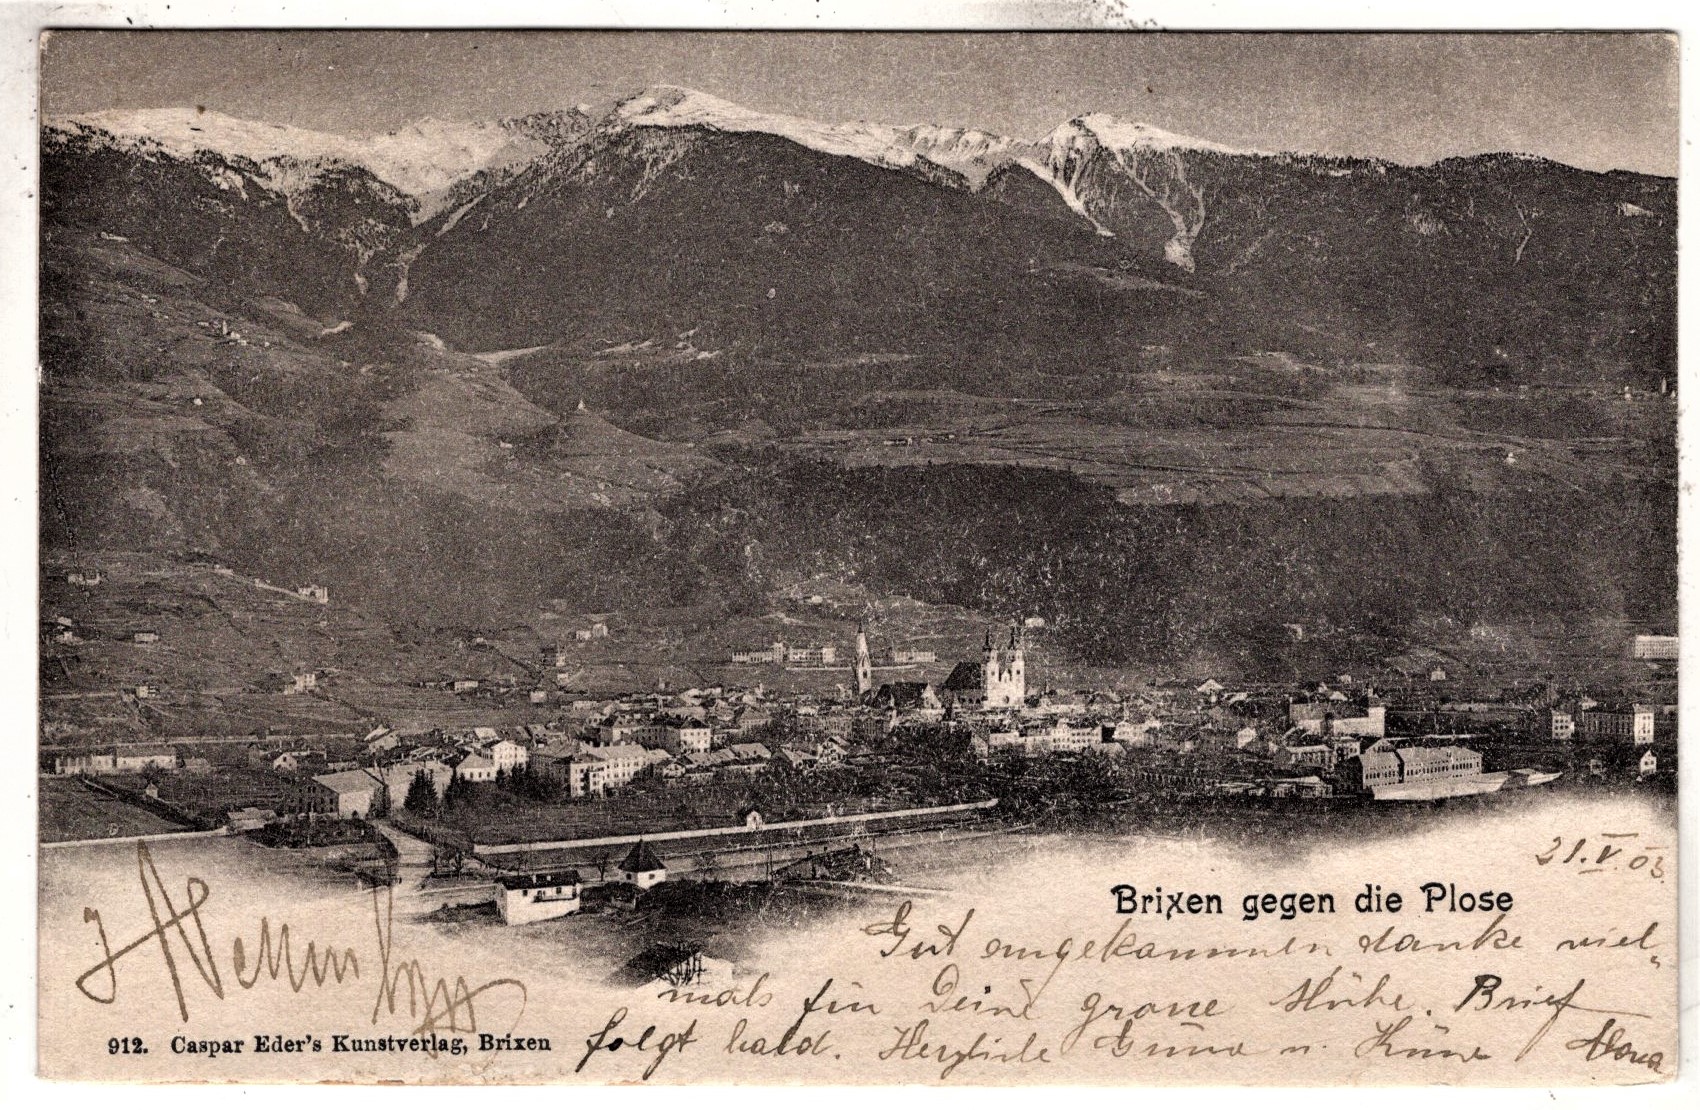 21.V.03.
Brixen gegen die Plose
Gut angekommen danke viel„
mals für Deine grosse Mühe. Brief
folgt bald. Herzliche Grüsse u. Küsse
912. Caspar Eder's Kunstverlag, Brixen